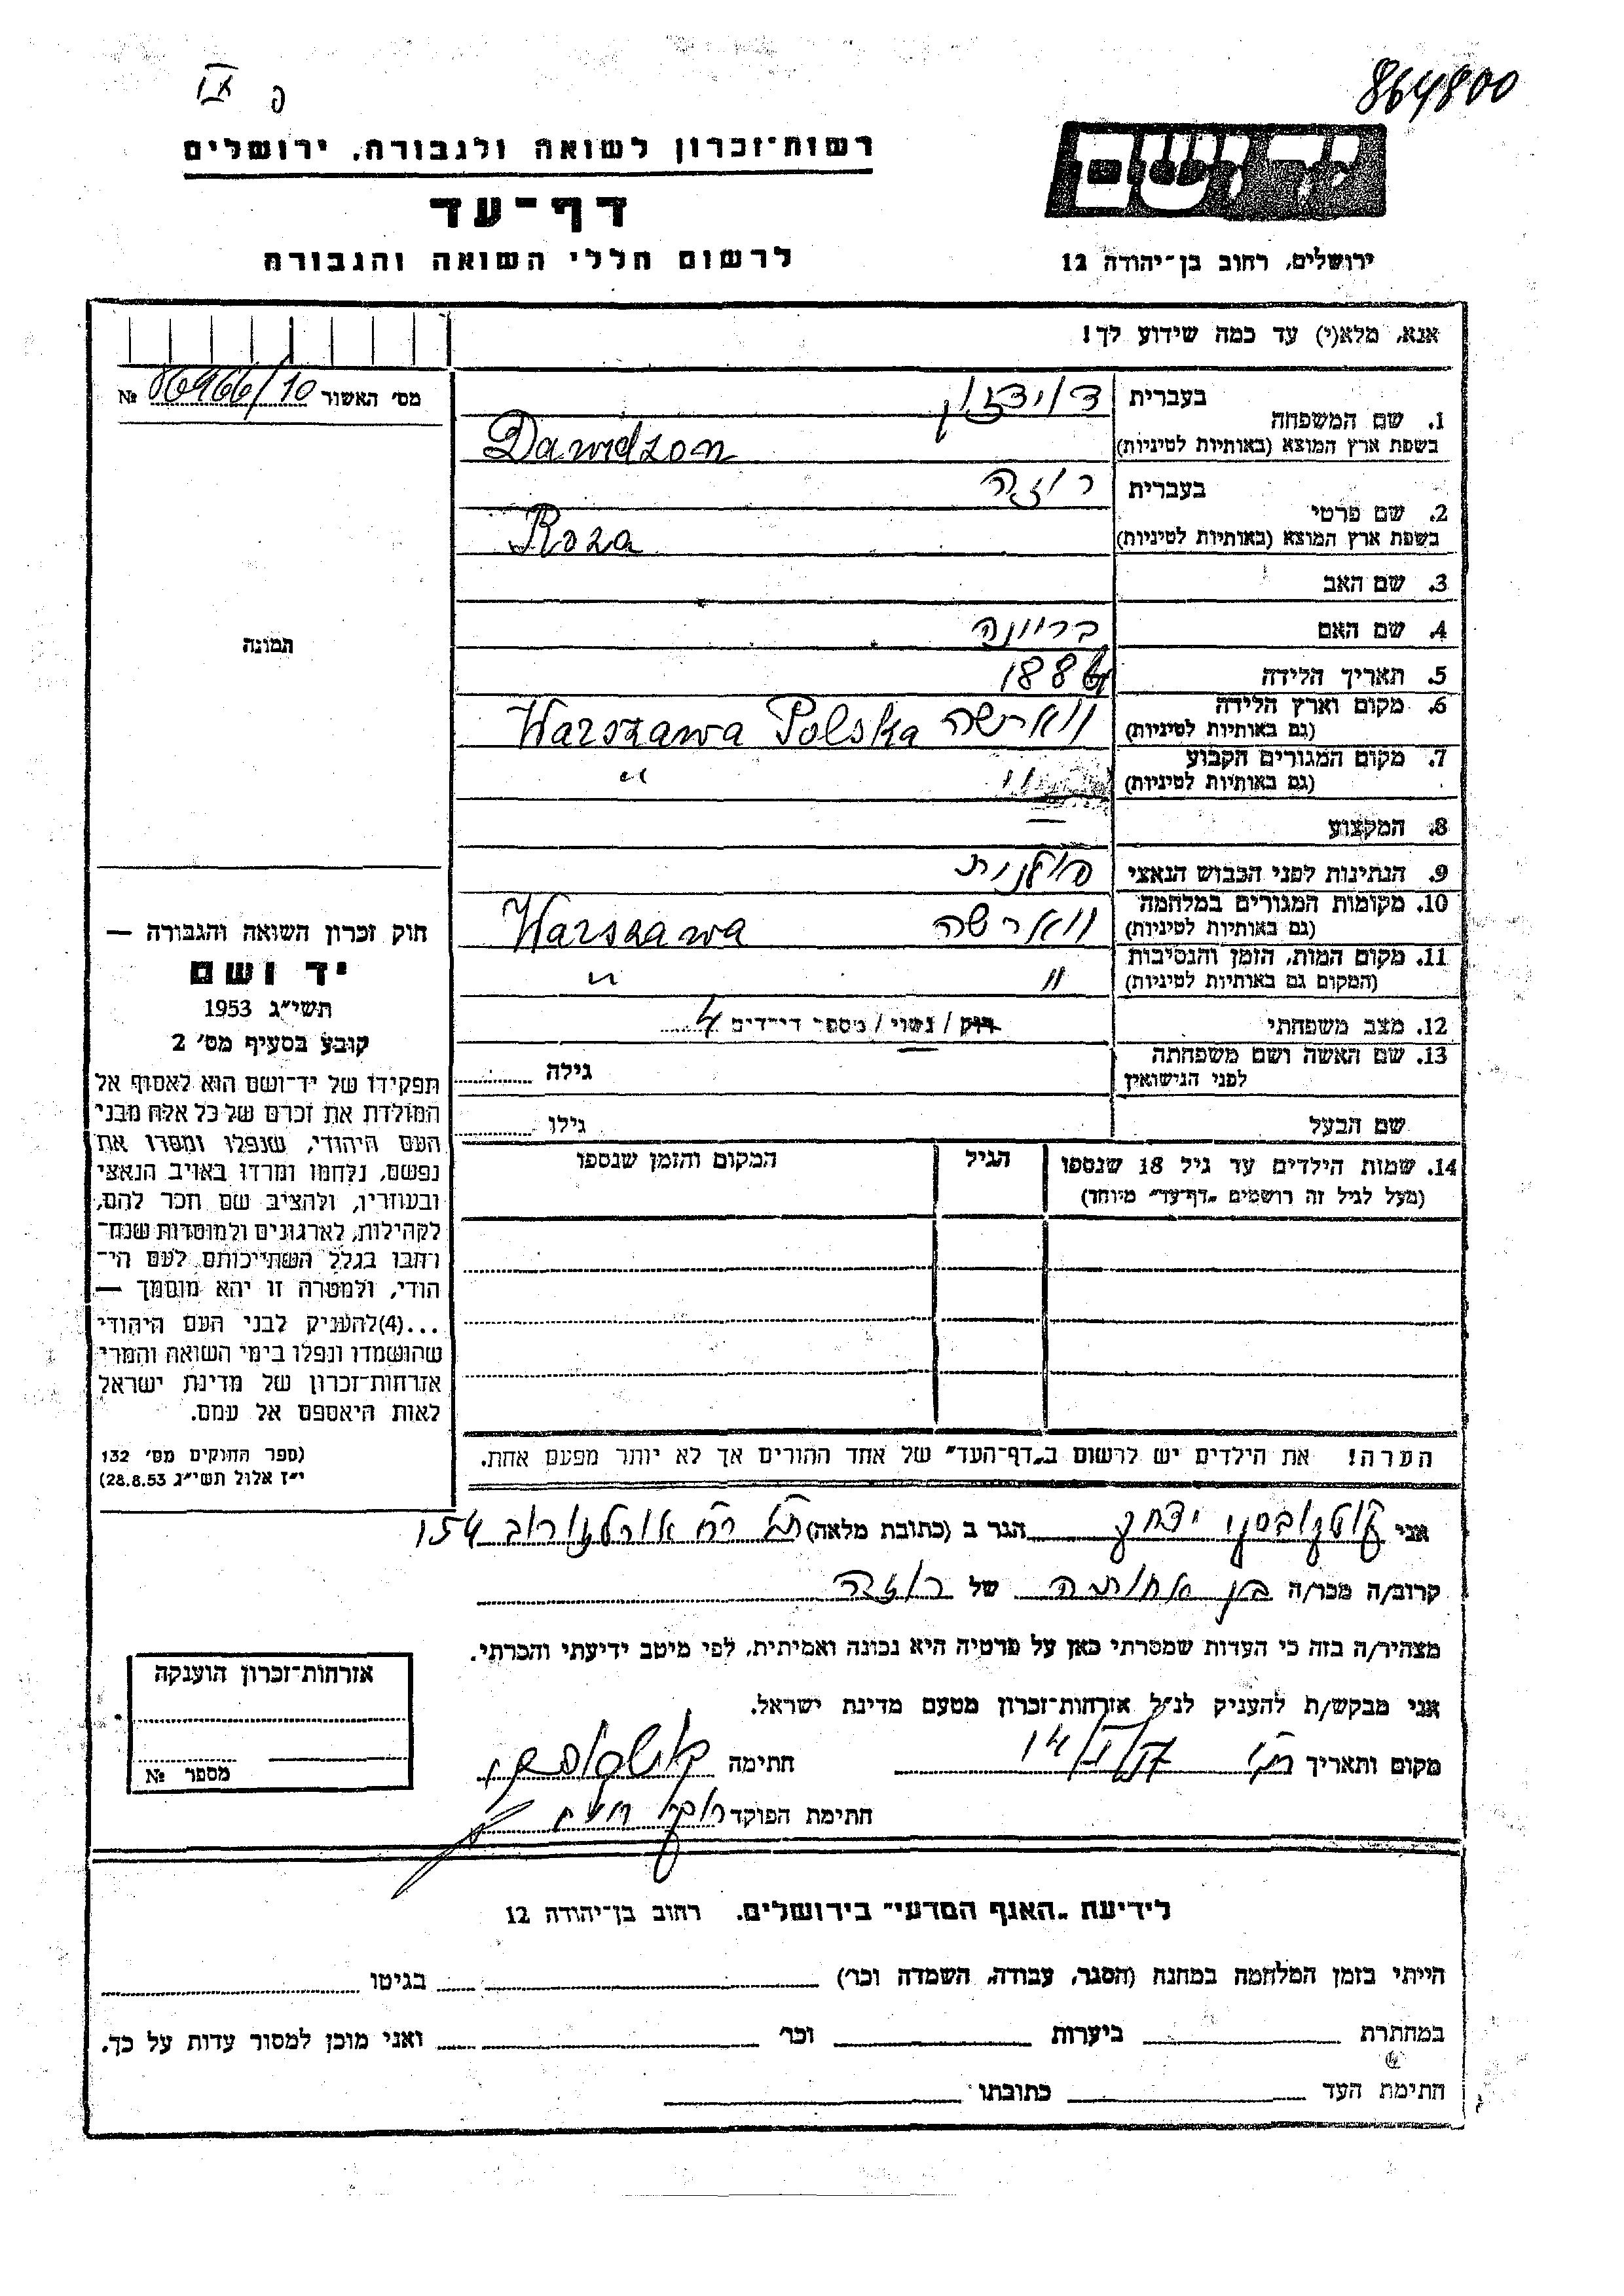 864800
פ
IX
רשות־זכרון לשואה ולגבורה, ירושלים
יד ושם
דף־עד
לרשום חללי השואה והגבורה
ירושלים, רחוב בן־יהודה 12
אנא, מלא(י) עד כמה שידוע לך!
מס׳ האשור 06966/10 №
1. שם המשפחה
בעברית דוידזון
בשפת ארץ המוצא (באותיות לטיניות) Dawidzon
2. שם פרטי
בעברית רוזה
בשפת ארץ המוצא (באותיות לטיניות) Roza
3. שם האב
4. שם האם בריינה
תמונה
5. תאריך הלידה 1886
6. מקום וארץ הלידה
(גם באותיות לטיניות) ווארשה Warszawa Polska
7. מקום המגורים הקבוע
(גם באותיות לטיניות) " "
8. המקצוע —
9. הנתינות לפני הכבוש הנאצי פולנית
10. מקומות המגורים במלחמה
(גם באותיות לטיניות) ווארשה Warszawa
11. מקום המות, הזמן והנסיבות
(המקום גם באותיות לטיניות) " "
12. מצב משפחתי רוק / נשוי / מספר ילדים 4
13. שם האשה ושם משפחתה
לפני הנישואין
גילה
שם הבעל
גילו
14. שמות הילדים עד גיל 18 שנספו
(מעל לגיל זה רושמים „דף־עד״ מיוחד)
הגיל
המקום והזמן שנספו
הערה! את הילדים יש לרשום ב„דף־העד״ של אחד ההורים אך לא יותר מפעם אחת.
חוק זכרון השואה והגבורה —
יד ושם
תשי״ג 1953
קובע בסעיף מס׳ 2
תפקידו של יד־ושם הוא לאסוף אל
המולדת את זכרם של כל אלה מבני
העם היהודי, שנפלו ומסרו את
נפשם, נלחמו ומרדו באויב הנאצי
ובעוזריו, ולהציב שם וזכר להם,
לקהילות, לארגונים ולמוסדות שנח־
רבו בגלל השתייכותם לעם הי־
הודי, ולמטרה זו יהא מוסמך —
...(4)להעניק לבני העם היהודי
שהושמדו ונפלו בימי השואה והמרי
אזרחות־זכרון של מדינת ישראל
לאות היאספם אל עמם.
(ספר החוקים מס׳ 132
י״ז אלול תשי״ג 28.8.53)
אני יצחק הגר ב (כתובת מלאה) רח׳ ארלוזורוב 154
קרוב/ה מכר/ה בן אחותה של רוזה
מצהיר/ה בזה כי העדות שמסרתי כאן על פרטיה היא נכונה ואמיתית, לפי מיטב ידיעתי והכרתי.
אני מבקש/ת להעניק לנ״ל אזרחות־זכרון מטעם מדינת ישראל.
מקום ותאריך
חתימה
חתימת הפוקד
אזרחות־זכרון הוענקה
מספר №
לידיעת „האגף המדעי״ בירושלים, רחוב בן־יהודה 12
הייתי בזמן המלחמה במחנה (הסגר, עבודה, השמדה וכו׳) בגיטו
במחתרת ביערות וכו׳ ואני מוכן למסור עדות על כך.
חתימת העד כתובתו